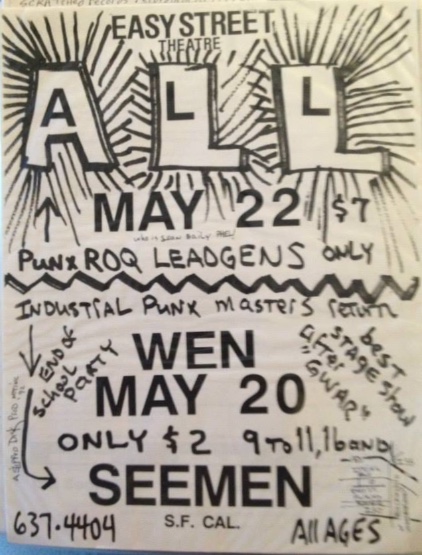 EASY STREET
THEATRE
ALL
MAY 22 $7
PUNX ROQ LEADGENS ONLY
INDUSTRIAL PUNX masters return
END OF
SCHOOL
PARTY
WEN
MAY 20
best
STAGE show
after
"GWAR"
ONLY $2 9 To 11, 1 band
SEEMEN
S.F. CAL.
637·4404
All AGES